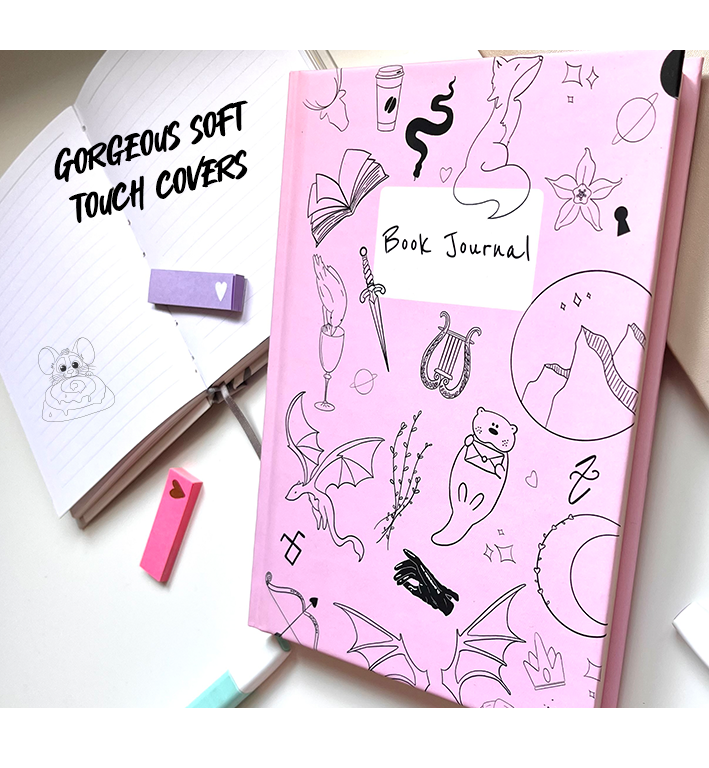 GORGEOUS SOFT
TOUCH COVERS
Book Journal